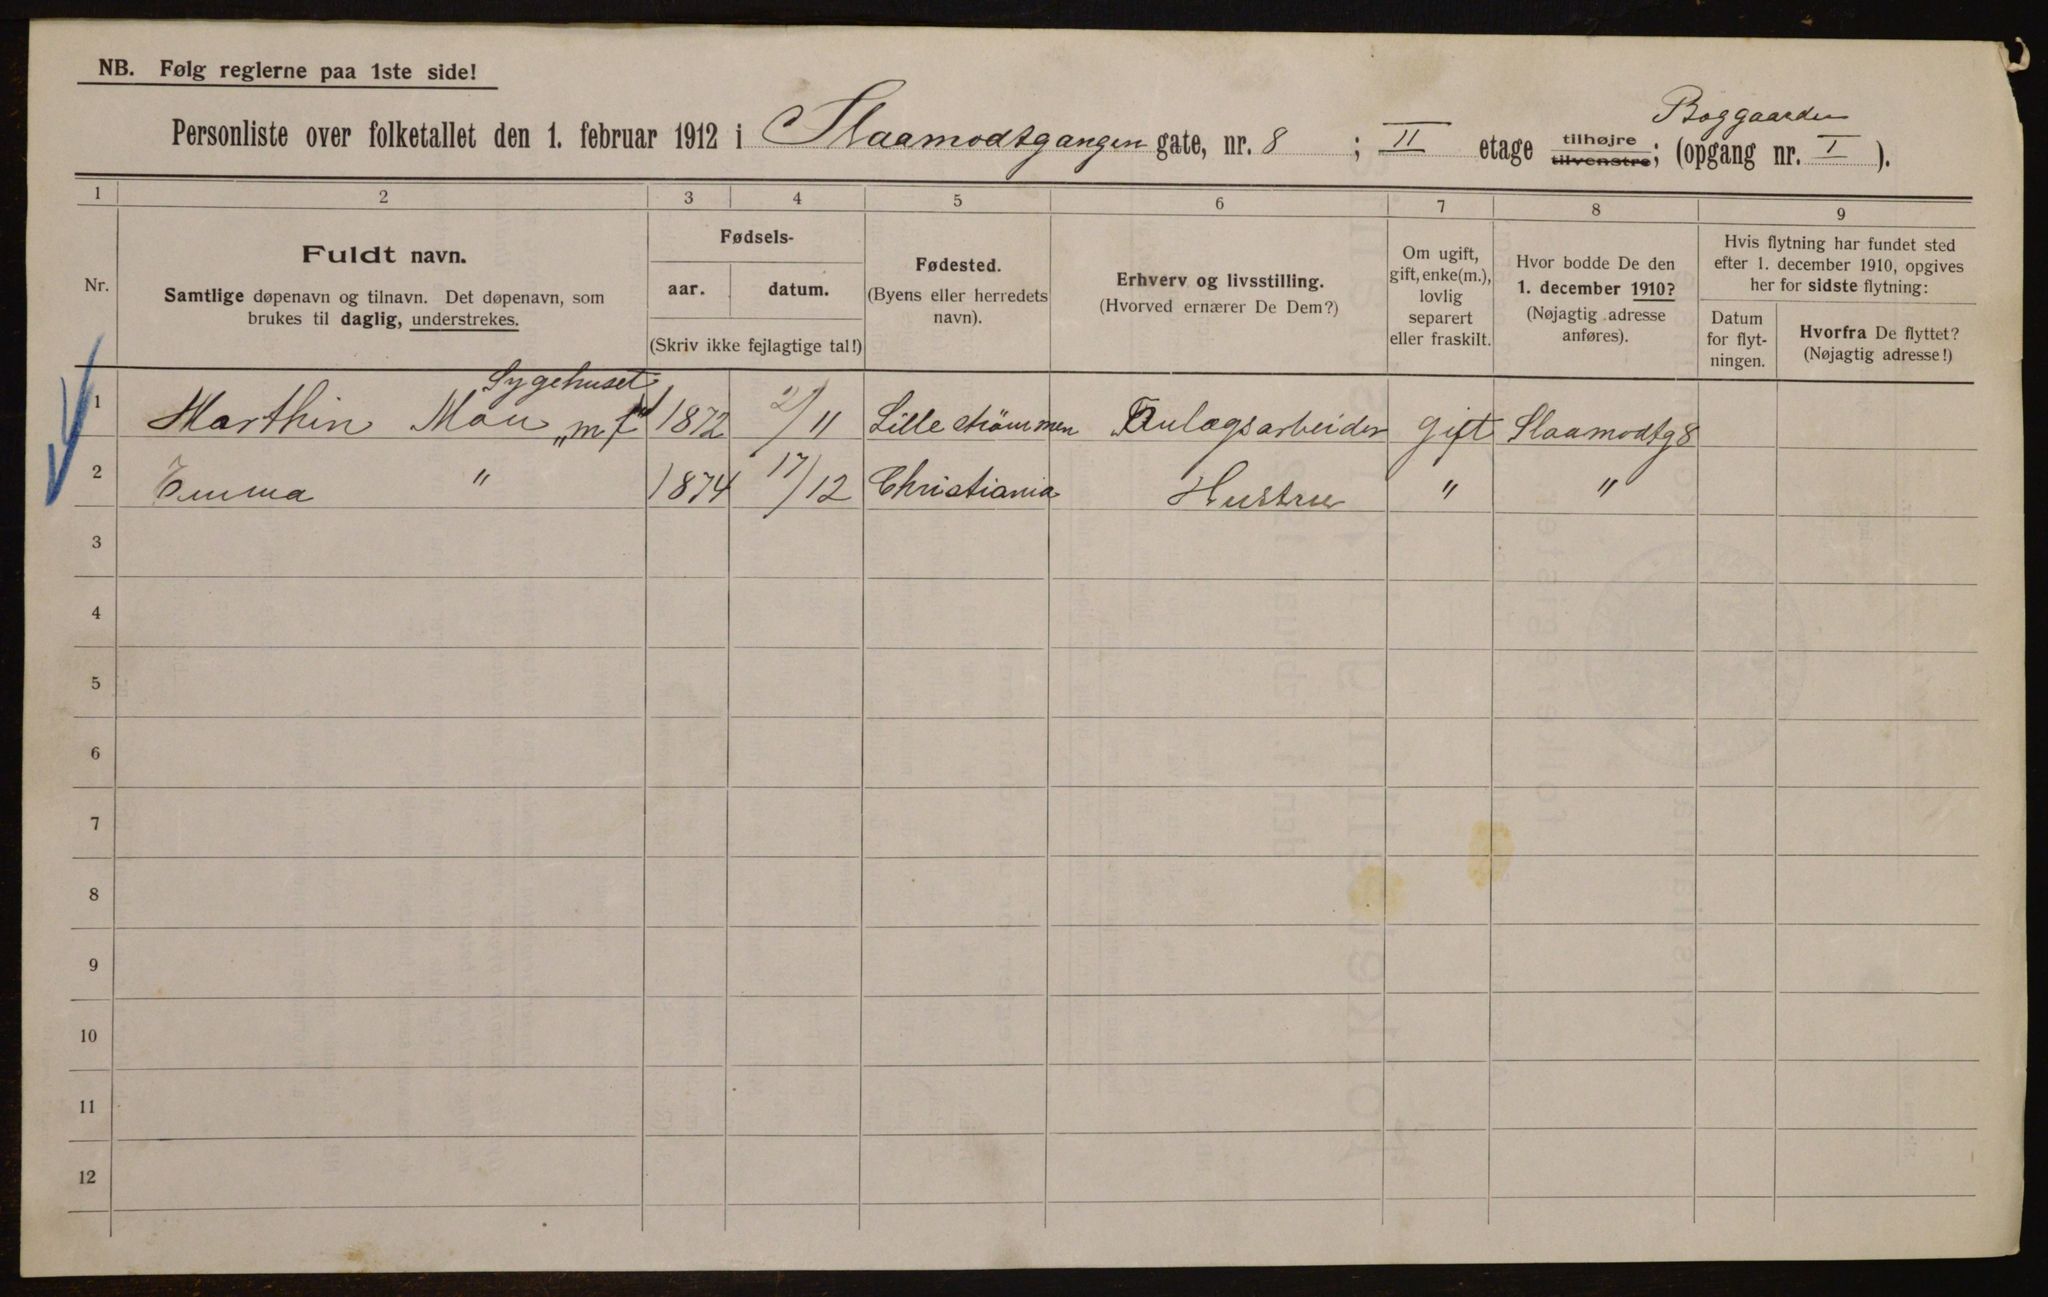 NB. Følg reglerne paa 1ste side!
Boggaarden
Personliste over folketallet den 1. februar 1912 i Slaamodtgangen gate, nr. 8 ; II etage tilhøjre tilvenstre; (opgang nr. I ).
1 2 3 4 5 6 7 8 9
Nr.
Fuldt navn.
Samtlige døpenavn og tilnavn. Det døpenavn, som
brukes til daglig, understrekes.
Fødsels-
aar. datum.
(Skriv ikke fejlagtige tal!)
Fødested.
(Byens eller herredets
navn).
Erhverv og livsstilling.
(Hvorved ernærer De Dem?)
Om ugift,
gift, enke(m.),
lovlig
separert
eller fraskilt.
Hvor bodde De den
1. december 1910?
(Nøjagtig adresse
anføres).
Hvis flytning har fundet sted
efter 1. december 1910, opgives
her for sidste flytning:
Datum
for flyt-
ningen.
Hvorfra De flyttet?
(Nøjagtig adresse!)
Sygehuset
1 Marthin Mou „mf“ 1872 2/11 Lille strømmen Anlægsarbeider gift Slaamodtg 8
2 Emma " 1874 17/12 Christiania Hustru " "
3
4
5
6
7
8
9
10
11
12